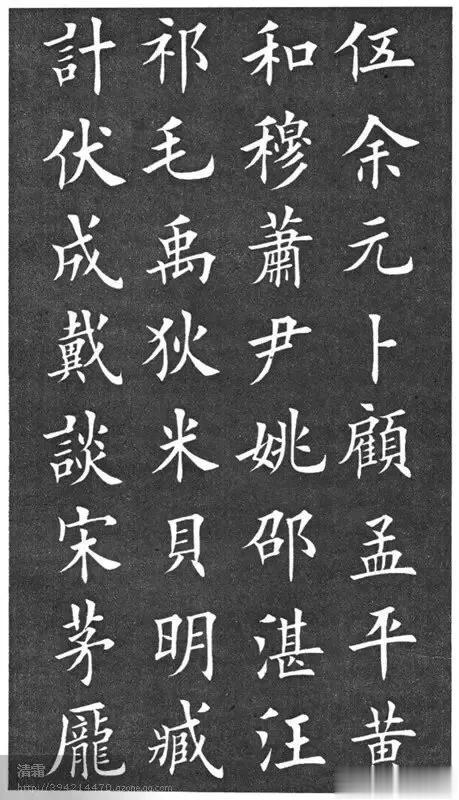 伍余元卜顧孟平黄
和穆蕭尹姚邵湛汪
祁毛禹狄米貝明臧
計伏成戴談宋茅龐
清霜
http://394214470.qzone.qq.com